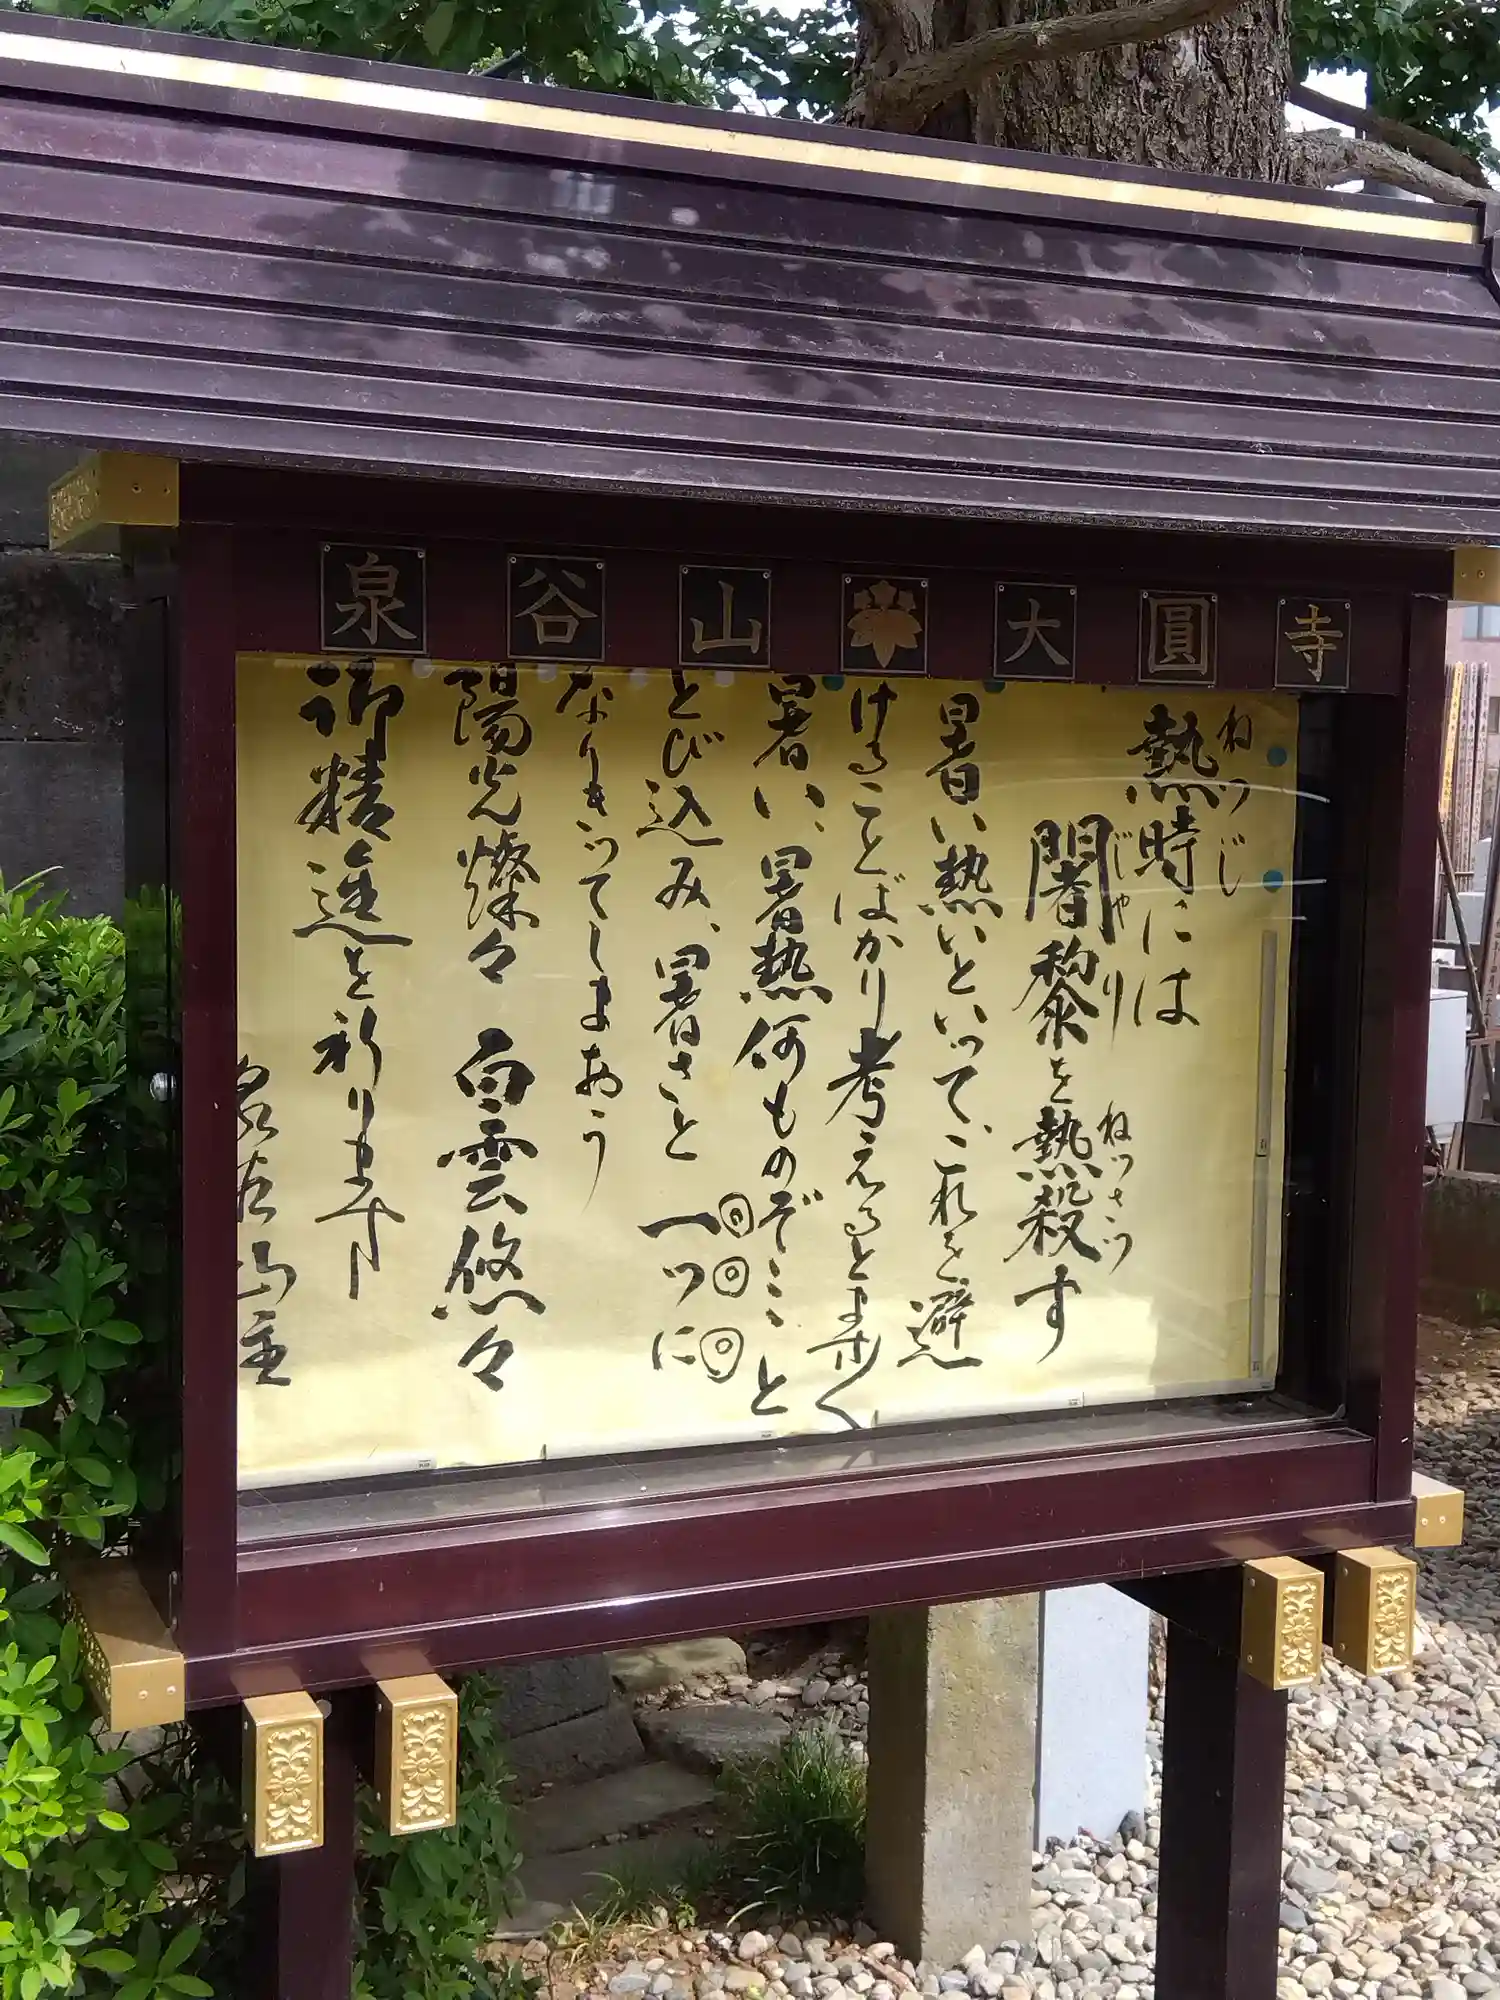 泉谷山大圓寺
熱時には
ねつじ
闍黎を熱殺す
じゃり
ねつさつ
暑い熱いといって、これを避
けることばかり考えるとよけい
暑い、暑熱何ものぞ！！と
とび込み、暑さと一つに
◎◎◎
なりきってしまおう
陽光燦々 白雲悠々
御精進を祈ります
泉谷山主